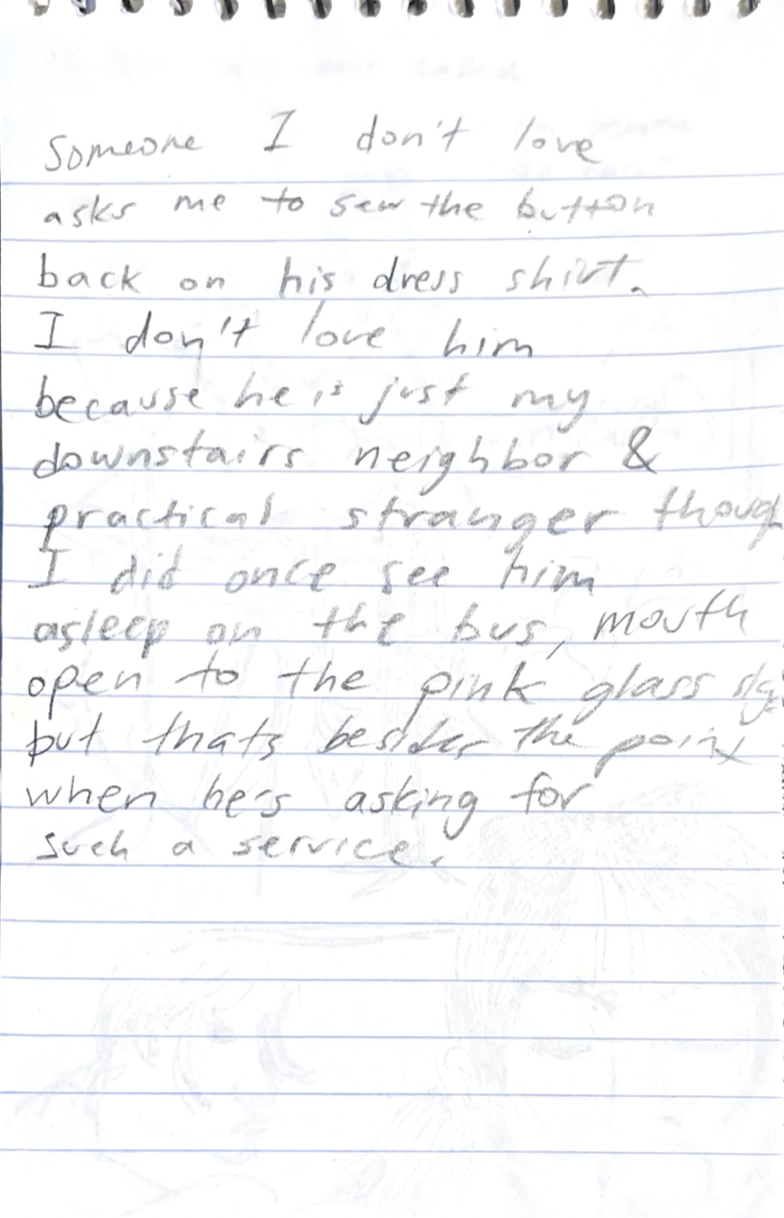 Someone I don't love
asks me to sew the button
back on his dress shirt.
I don't love him
because he is just my
downstairs neighbor &
practical stranger though
I did once see him
asleep on the bus, mouth
open to the pink glass sky
but thats besides the point
when he's asking for
such a service.